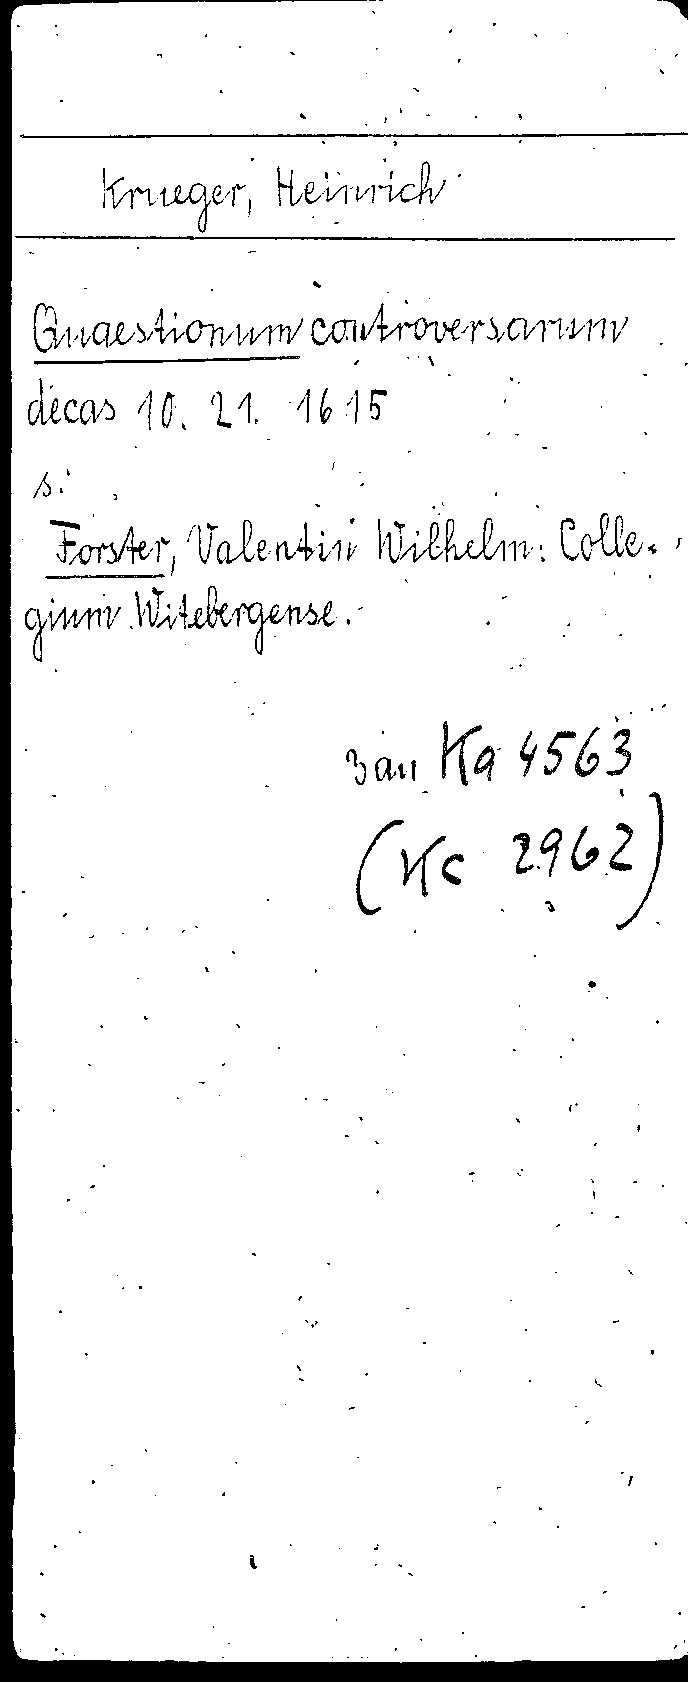 Krueger, Heinrich
Quaestionum controversarum
decas 10. 21. 1615
s.
Forster, Valentin Wilhelm: Colle-
gium Witebergense.
3 an Ka 4563
(Kc 2962)